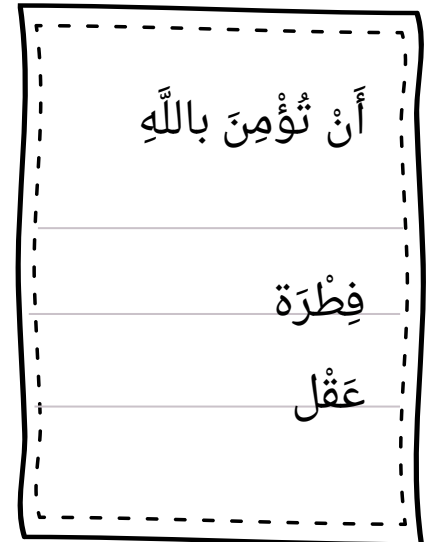 أَنْ تُؤْمِنَ باللَّهِ
فِطْرَة
عَقْل